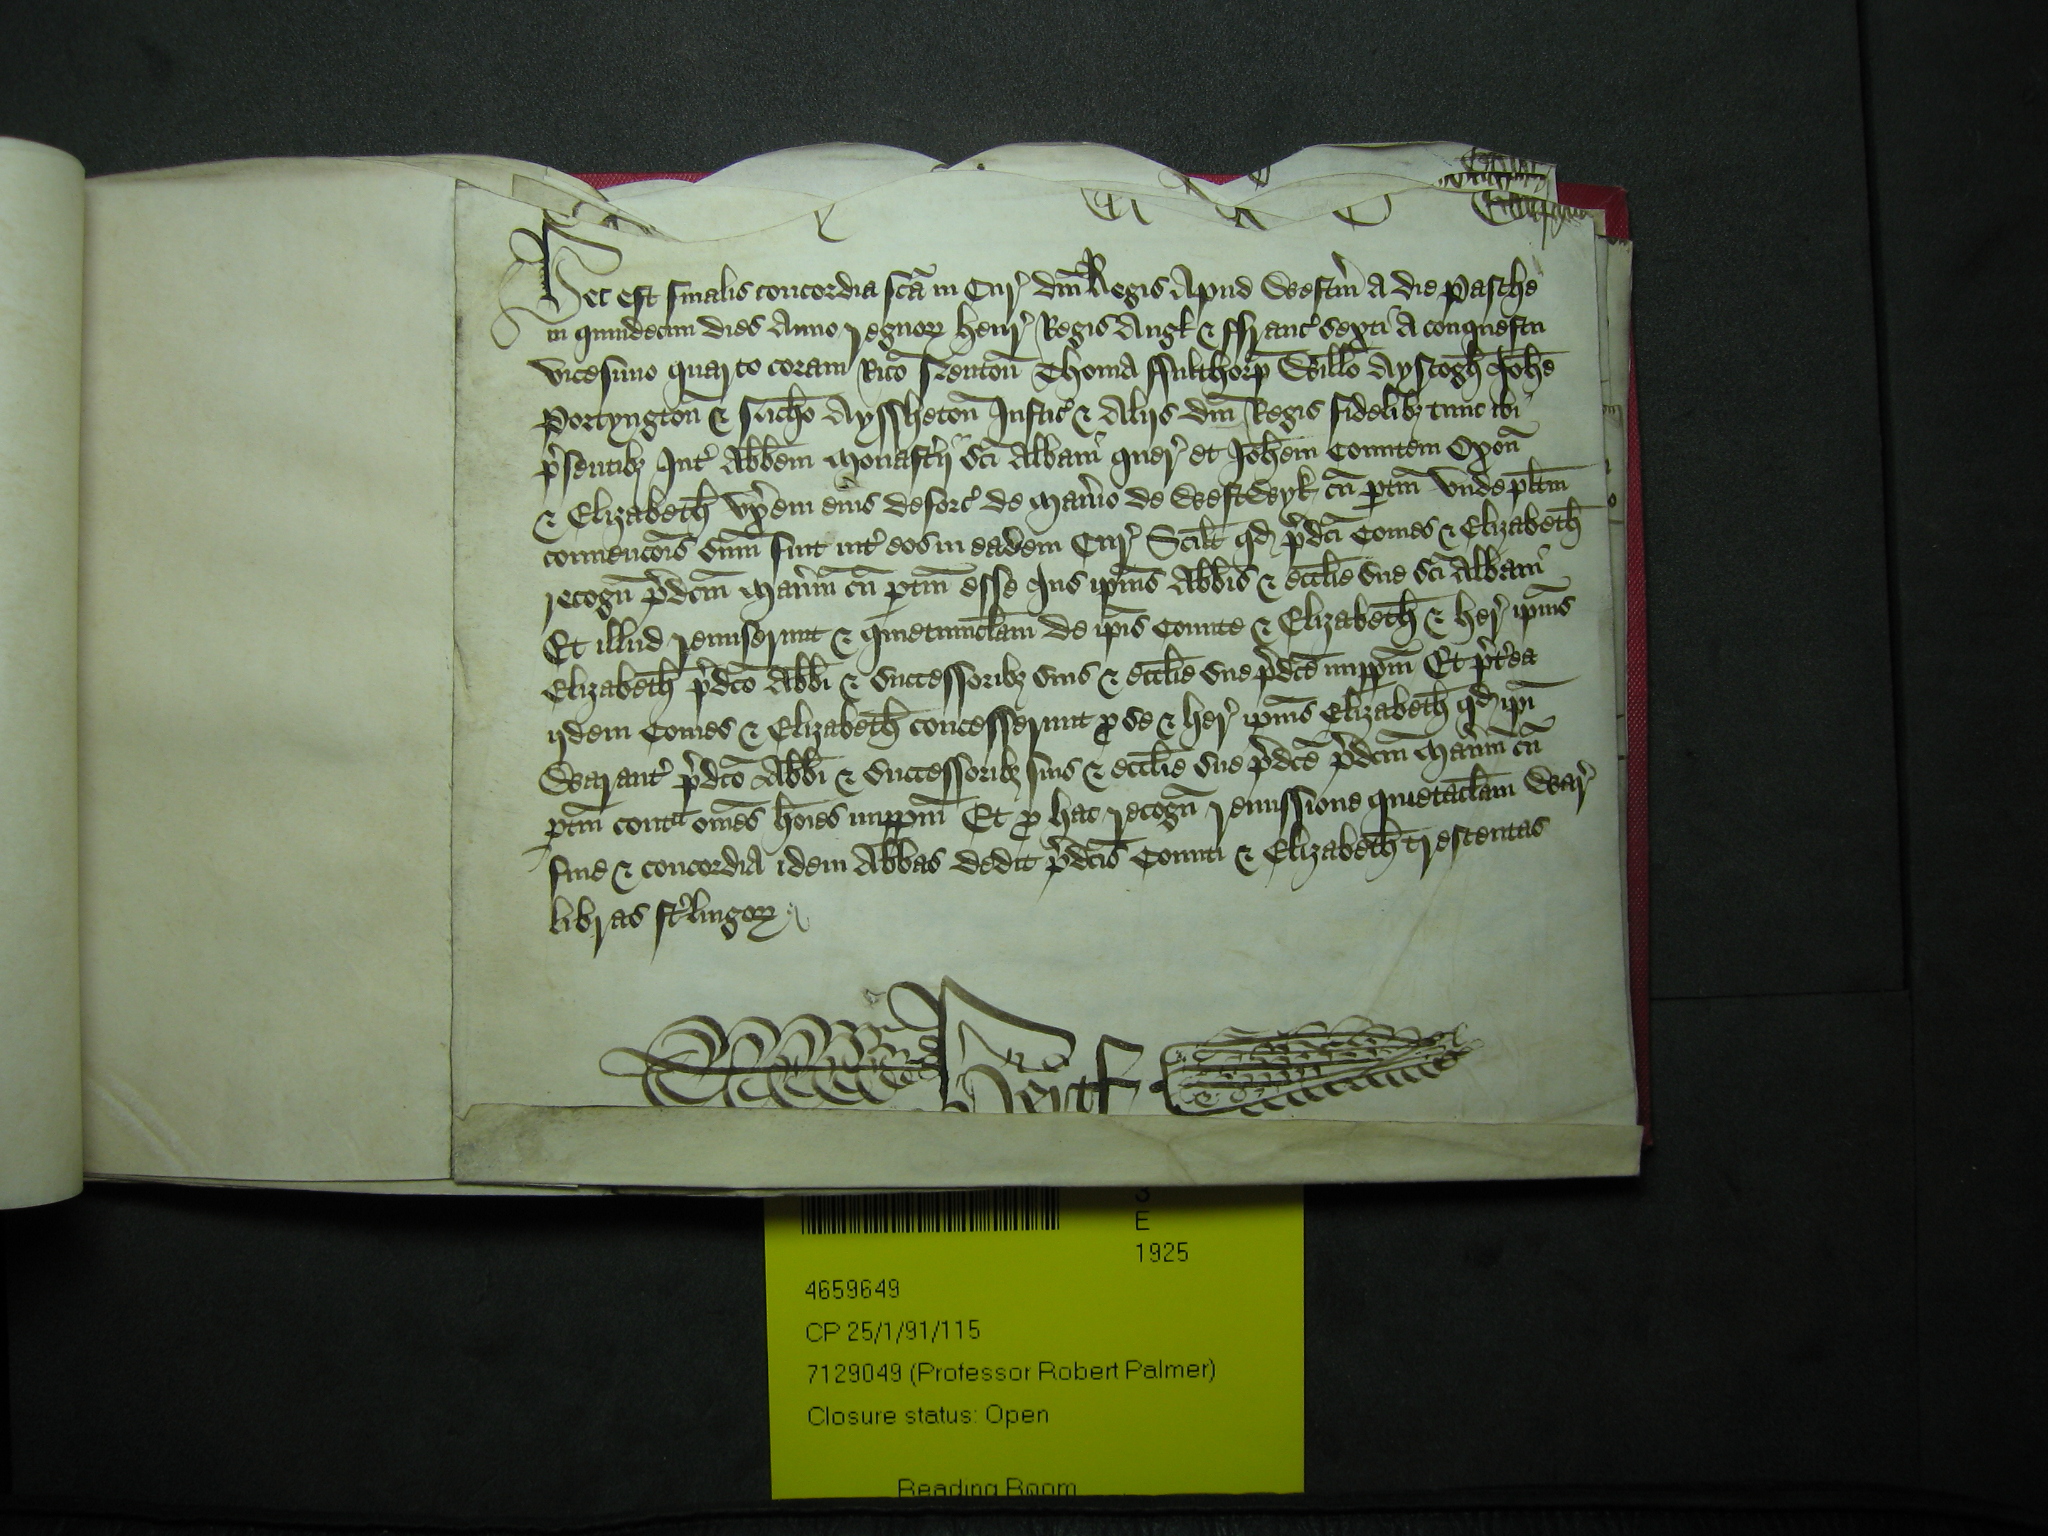 Hec est finalis concordia fcã in Cur' dñi Regis Apud Westm̃ A die Pasche
in quindecim dies Anno regnor' Henr' Regis Angl' & ffranc' sexti A conquestu
vicesimo quarto coram Ric̃o Neuton̄ Thoma ffulthorp̄ Will̃o Ayscogh̄ Joh̃e
Portyngton̄ & Nich̃o Ayssheton̄ Justic' & Aliis dñi Regis fidelibz tunc ibi
p̃sentibz Int' Abb̃em Monast'ii Sc̃i Albani quer' et Joh̃em Comitem Oxon̄
& Elizabeth̄ vx̃em eius deforc' de Man̄io de Westwyk cū ptiñ vnde pl̃itm̃
conuencõis sum̃ fuit int' eos in eadem Cur' Scil̃t qd p̃dc̃i Comes & Elizabeth̄
recogn̄ p̃dcm̃ Man̄iu' cū ptiñ esse Jus ip̃ius Abb̃is & eccl̃ie sue Sc̃i Albani
Et illud remiserunt & quietumclam̃ de ip̃is Comite & Elizabeth̄ & her' ip̃ius
Elizabeth̄ p̃dc̃o Abb̃i & Successoribz suis & eccl̃ie sue p̃dc̃e imppm̃ Et p̃t'ea
ijdem Comes & Elizabeth̄ concesserunt p se & her' ip̃ius Elizabeth̄ qd ip̃i
Warant' p̃dc̃o Abb̃i & Successoribz suis & eccl̃ie sue p̃dc̃e p̃dcm̃ Man̄iu' cū
ptiñ cont̃ om̃es ho̅ies imppm̃ Et p hac recogn̄ remissione quietaclam̃ War'
fine & concordia idem Abbas dedit p̃dc̃is Comiti & Elizabeth̄ trescentas
libras st'lingor'
Hertf
S
E
1925
4659649
CP 25/1/91/115
7129049 (Professor Robert Palmer)
Closure status: Open
Reading Room